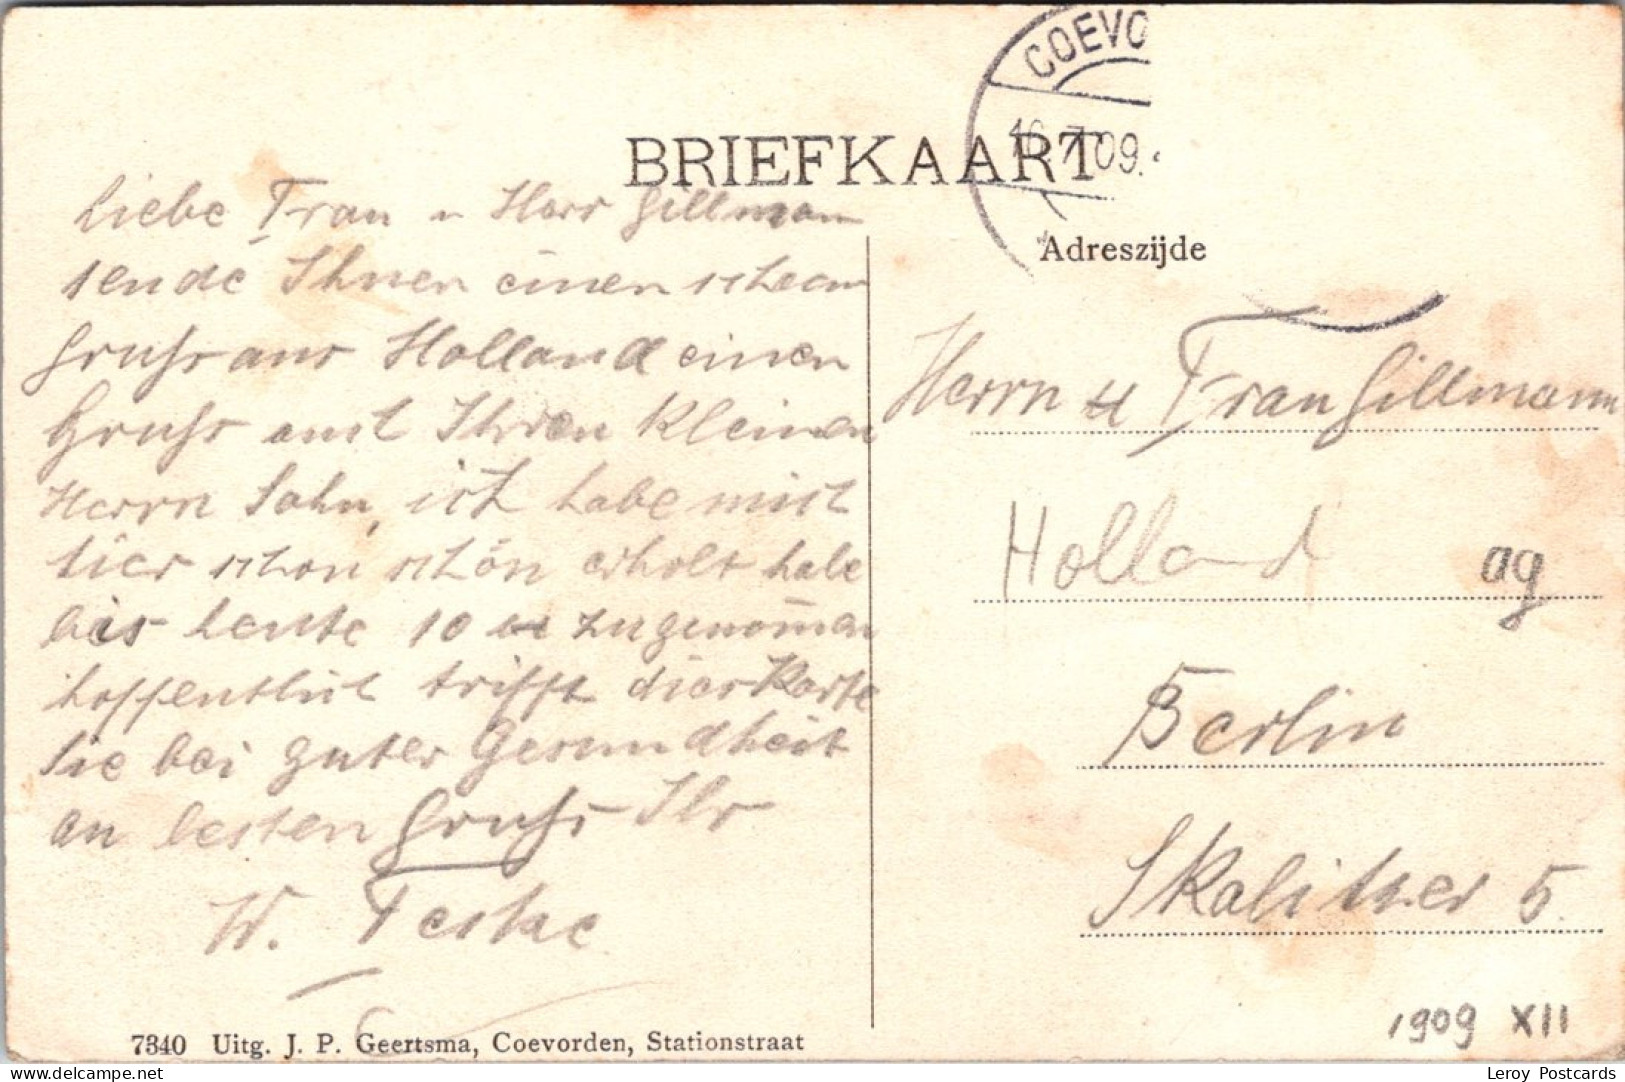 COEVO
16.7.09.
BRIEFKAART
Adreszijde
Liebe Frau u Herr Gillmann
sende Ihnen einen
Gruss aus Holland einen
Gruss auch Ihren kleinen
Herrn Sohn, ich habe mich
hier schon schön erholt habe
bis heute 10 ℔ zugenom̄en
hoffentlich trifft diese Karte
Sie bei guter Gesundheit
an besten Gruss Ihr
W. Teske
Herrn u Frau Gillmann
Holland ag
Berlin
Skalitzer 5
1909 XII
7340 Uitg. J. P. Geertsma, Coevorden, Stationstraat
www.delcampe.net
Leroy Postcards